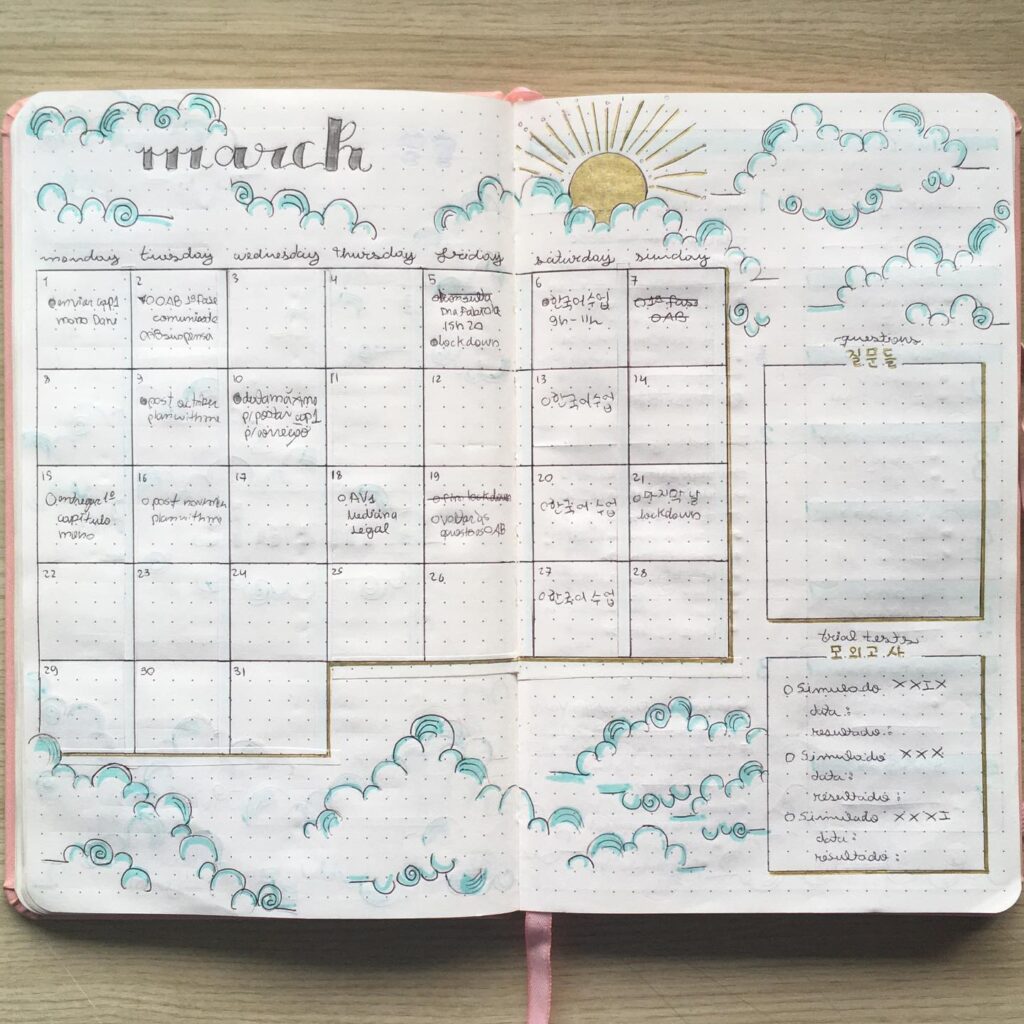 march
monday tuesday wednesday thursday friday saturday sunday
1
enviar cap1
mono Dani
2
OAB 1ª fase
comunicate
OAB suspensa
3
4
5
consulta
Dra Fabíola
15h20
lockdown
6
한국어 수업
9h-11h
7
1ª fase
OAB
8
9
post october
plan with me
10
data máxima
p/ postar cap1
p/ correção
11
12
13
한국어 수업
14
15
entregar 1º
capítulo
mono
16
post november
plan with me
17
18
AV1
Medicina
Legal
19
fim lockdown
voltar às
questões OAB
20
한국어 수업
21
마지막 날
lockdown
22
23
24
25
26
27
한국어 수업
28
29
30
31
questions
질문들
trial tests
모의고사
Simulado XXIX
data:
resultado:
Simulado XXX
data:
resultado:
Simulado XXXI
data:
resultado: